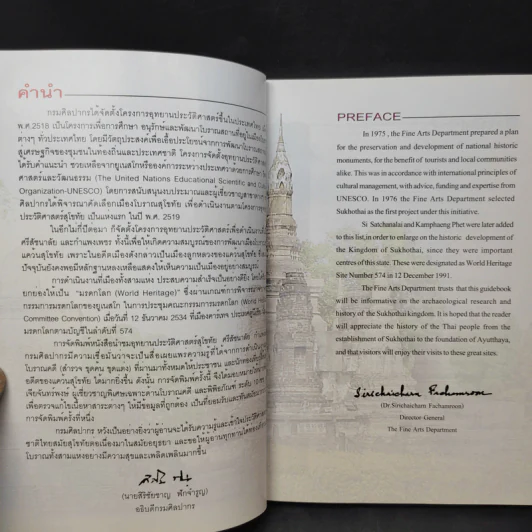 คำนำ
กรมศิลปากรได้จัดตั้งโครงการอุทยานประวัติศาสตร์ขึ้นในประเทศไทย
พ.ศ.2518 เป็นโครงการเพื่อการศึกษา อนุรักษ์และพัฒนาโบราณสถานที่อยู่ในเมือง
ต่างๆ ทั่วประเทศไทย โดยมีวัตถุประสงค์เพื่อเอื้อประโยชน์จากการพัฒนาโบราณ
สู่เศรษฐกิจของชุมชนในท้องถิ่นและประเทศชาติ โครงการจัดตั้งอุทยานประวัติศาสตร์
ได้รับคำแนะนำ ช่วยเหลือจากยูเนสโกหรือองค์การระหว่างประเทศว่าด้วยการศึกษา
ศาสตร์และวัฒนธรรม (The United Nations Educational Scientific and
Organization-UNESCO) โดยการสนับสนุนงบประมาณและผู้เชี่ยวชาญสาขาต่างๆ
ศิลปากรได้พิจารณาคัดเลือกเมืองโบราณสุโขทัย เพื่อดำเนินงานตามโครงการ
ประวัติศาสตร์สุโขทัย เป็นแห่งแรก ในปี พ.ศ. 2519
ในอีกไม่กี่ปีต่อมา ก็จัดตั้งโครงการอุทยานประวัติศาสตร์เพื่อดำเนินงานที่
ศรีสัชนาลัย และกำแพงเพชร ทั้งนี้เพื่อให้เกิดความสมบูรณ์ของการพัฒนาเมือง
แคว้นสุโขทัย เพราะในอดีตเมืองดังกล่าวเป็นเมืองลูกหลวงของแคว้นสุโขทัย
ปัจจุบันยังคงพอมีหลักฐานหลงเหลือแสดงให้เห็นความเป็นเมืองอยู่อย่างสมบูรณ์
การดำเนินงานที่เมืองทั้งสามแห่ง ประสบความสำเร็จเป็นอย่างดียิ่ง
ยกย่องให้เป็น "มรดกโลก (World Heritage)" ซึ่งผ่านเกณฑ์การพิจารณา
กรรมการมรดกโลกของยูเนสโก ในการประชุมคณะกรรมการมรดกโลก (World
Committee Convention) เมื่อวันที่ 12 ธันวาคม 2534 ที่เมืองคาร์เทจ ประเทศตูนิเซีย
มรดกโลกตามบัญชีในลำดับที่ 574
การจัดพิมพ์หนังสือนำชมอุทยานประวัติศาสตร์สุโขทัย ศรีสัชนาลัย
กรมศิลปากรมีความเชื่อมั่นว่าจะเป็นสื่อเผยแพร่ความรู้ที่ได้จากการดำเนิน
โบราณคดี (สำรวจ ขุดค้น ขุดแต่ง) ที่ผ่านมาทั้งหมดให้ประชาชน และนักท่องเที่ยว
อดีตของแคว้นสุโขทัย ได้มากยิ่งขึ้น
กรมศิลปากร หวังเป็นอย่างยิ่งว่าผู้อ่านจะได้รับความรู้และเข้าใจประวัติศาสตร์
ชาติไทยสมัยสุโขทัยต่อเนื่องมาในสมัยอยุธยา และขอให้ผู้อ่านทุกท่าน
โบราณทั้งสามแห่งอย่างมีความสุขและเพลิดเพลินมากขึ้น
(นายสิริชัยชาญ ฟักจำรูญ)
อธิบดีกรมศิลปากร
PREFACE
In 1975 , the Fine Arts Department prepared a plan
for the preservation and development of national historic
monuments, for the benefit of tourists and local communities
alike. This was in accordance with international principles of
cultural management, with advice, funding and expertise from
UNESCO. In 1976 the Fine Arts Department selected
Sukhothai as the first project under this initiative.
Si Satchanalai and Kamphaeng Phet were later added
to this list,in order to enlarge on the historic development of
the Kingdom of Sukhothai, since they were important
centres of this state. These were designated as World Heritage
Site Number 574 in 12 December 1991.
The Fine Arts Department trusts that this guidebook
will be informative on the archaeological research and
history of the Sukhothai kingdom. It is hoped that the reader
will appreciate the history of the Thai people from the
establishment of Sukhothai to the foundation of Ayutthaya,
and that visitors will enjoy their visits to these great sites.
Sirichaichan Fachamroon
(Dr.Sirichaichan Fachamroon)
Director-General
The Fine Arts Department